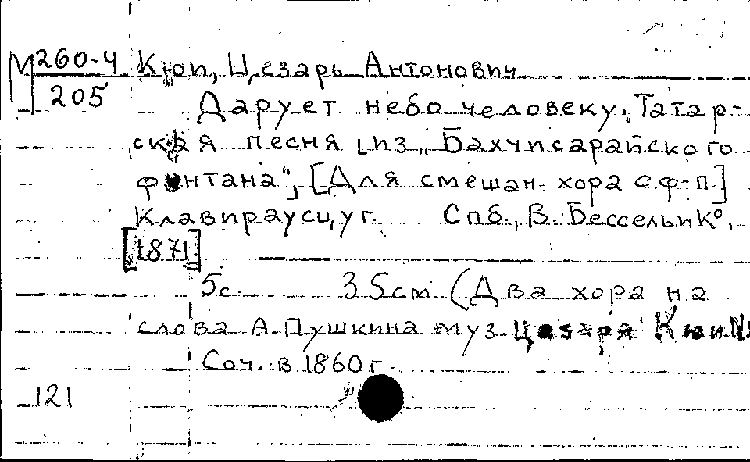 М 260-4 Кюи, Цезарь Антонович
205 Дарует небо человеку. Татар-
ская песня из „Бахчисарайского
фонтана", [Для смешан. хора с ф-п.]
Клавираусцуг. Спб., В. Бессель и К°,
[1871]
5с. 35см (Два хора на
слова А. Пушкина муз. Цезаря Кюи №
Соч. в 1860 г.
121